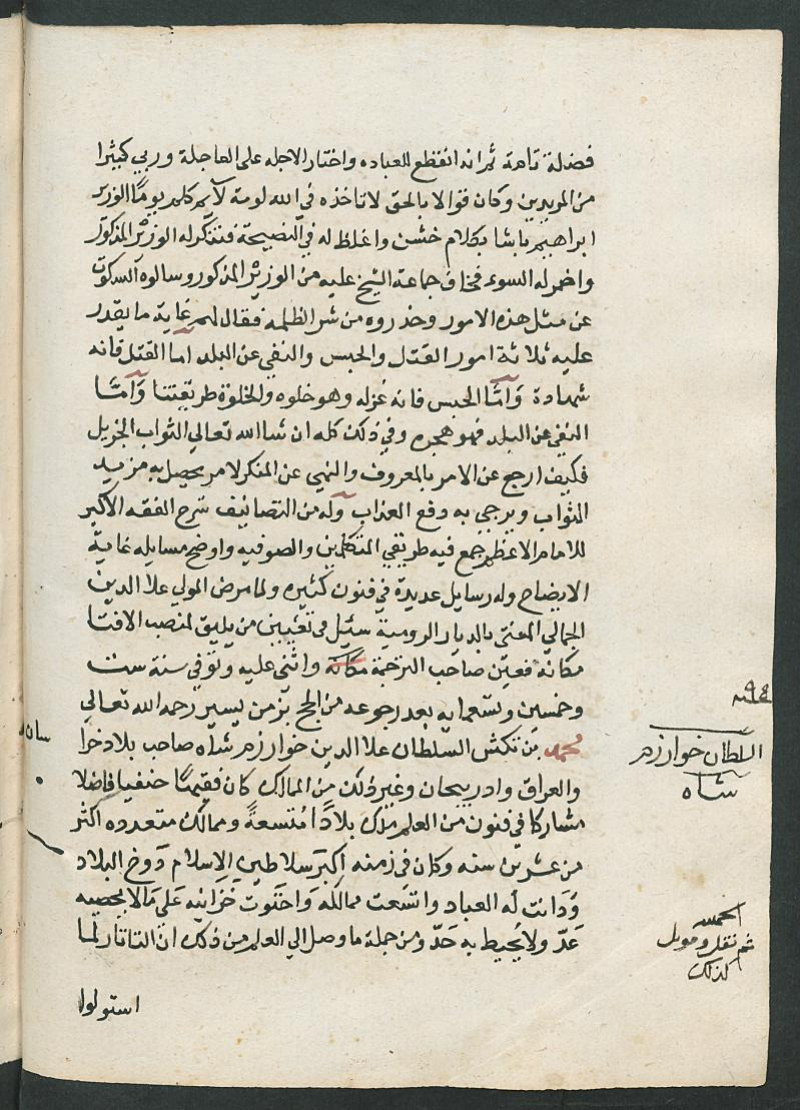 فضلة تامة ثم انه انقطع للعباده واختار الاجله على العاجلة وربي كثيرا
من المريدين وكان قوالا بالحق لا تاخذه في الله لومة لايم كلم يوما الوزير
ابراهيم باشا بكلام خشن واغلظ له في النصيحة فتنكر له الوزير المذكور
واضمر له السوء فخاف جماعة الشيخ عليه من الوزير المذكور وسالوه السكوت
عن مثل هذه الامور وحذروه من شر الظلمه فقال لهم غاية ما يقدر
عليه ثلاثة امور القتل والحبس والنفي عن البلد اما القتل فانه
شهادة وامّا الحبس فانه عزله وهو خلوه والخلوة طريقتنا وامّا
النفي عن البلد فهو هجره وفي ذلك كله ان شاالله تعالي الثواب الجزيل
فكيف ارجع عن الامر بالمعروف والنهي عن المنكر لامر يحصل به مزيد
الثواب ويرجي به دفع العذاب وله من التصانيف شرح الفقه الاكبر
للامام الاعظم جمع فيه طريقي المتكلمين والصوفيه واوضح مسايله غاية
الايضاح وله رسايل عديدة في فنون كثيره ولما مرض المولي علا الدين
الجمالي المفتي بالديار الرومية سئل في تعيين من يليق لمنصب الافتا
مكانه فعين صاحب الترجمة مكانه واثني عليه وتوفي سنة ست
وخمسين وتسعمايه بعد رجوعه من الحج بزمن يسير رحمه الله تعالي
محمد بن تكش السلطان علا الدين خوارزم شاه صاحب بلاد خرا
والعراق وادربيجان وغير ذلك من الممالك كان فقيهًا حنفيا فاضلا
مشاركا في فنون من العلم ملك بلادًا متسعةً وممالك متعدده اكثر
من عشرين سنه وكان في زمنه اكبر سلاطين الاسلام دوخ البلاد
ودانت له العباد واتسعت ممالكه واحتوت خزاينه على مالا يحصيه
عَدّ ولا يُحيط به حَدّ ومن جملة ما وصل الي العلم من ذلك ان التاتار لما
استولوا
سان
السلطان خوارزم
شاه
ثم نقل وقوبل
كذلك